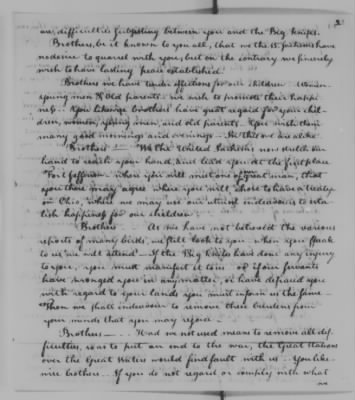 2
any difficulties subsisting between you and the Big knifes.
Brothers, be it known to you all, that we the 15 Sachems have
no desire to quarrel with you, but on the contrary we sincerely
wish to have lasting peace established.
Brothers we have tender affections for our children, women
young men & old parents, we wish to promote their happi-
ness. You likewise brothers have great regard for your chil-
dren, women, young men, and old parents. You wish them
many good mornings and evenings. In this we are alike.
Brothers — We the United Sachems now stretch our
hand to reach your hand, and lead you at the first place
Fort Jefferson where you will meet one of great man, that
you there may agree where you will chose to have a treaty
on Ohio, where we may use our utmost endeavours to esta-
blish happiness for our children.
Brothers — As we have not betrowed the various
reports of many birds, we still look to you when you speak
to us we will attend. If the Big knifes have done any injury
to you, you must manifest it to us or if our servants
have wronged you in any matter, or have defraud you
with regard to your lands you must inform us the same.
Then we shall endeavour to remove their burden from
your minds that you may rejoice.
Brothers — Had we not used means to remove all dif-
ficulties, so as to put an end to the war, the Great Nations
over the Great Waters would find fault with us. You like-
wise brothers. If you do not regard or comply with what
we